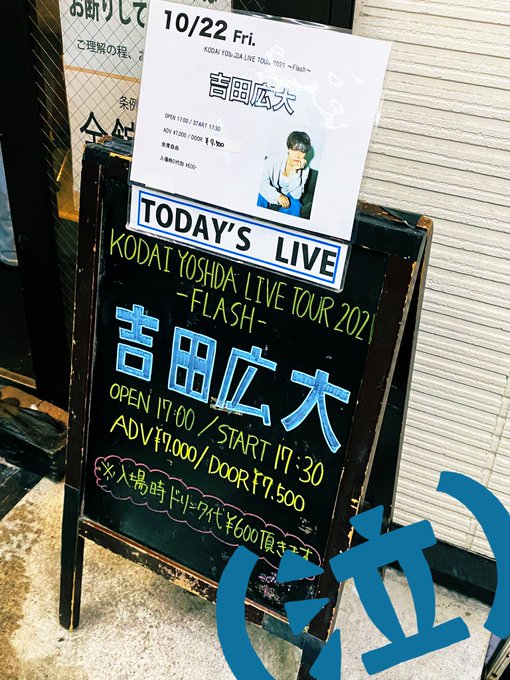 お断りして
ご理解の程、
条例
10/22 Fri.
KODAI YOSHIDA LIVE TOUR 2021 〜Flash〜
吉田広大
OPEN 17:00 / START 17:30
ADV ¥7,000 / DOOR
全席自由
入場時D代別 ¥600-
TODAY'S LIVE
KODAI YOSHDA LIVE TOUR 2021
-FLASH-
吉田広大
OPEN 17:00 / START 17:30
ADV ¥7.000 / DOOR ¥7.500
※入場時ドリンク代¥600頂きます
(泣)